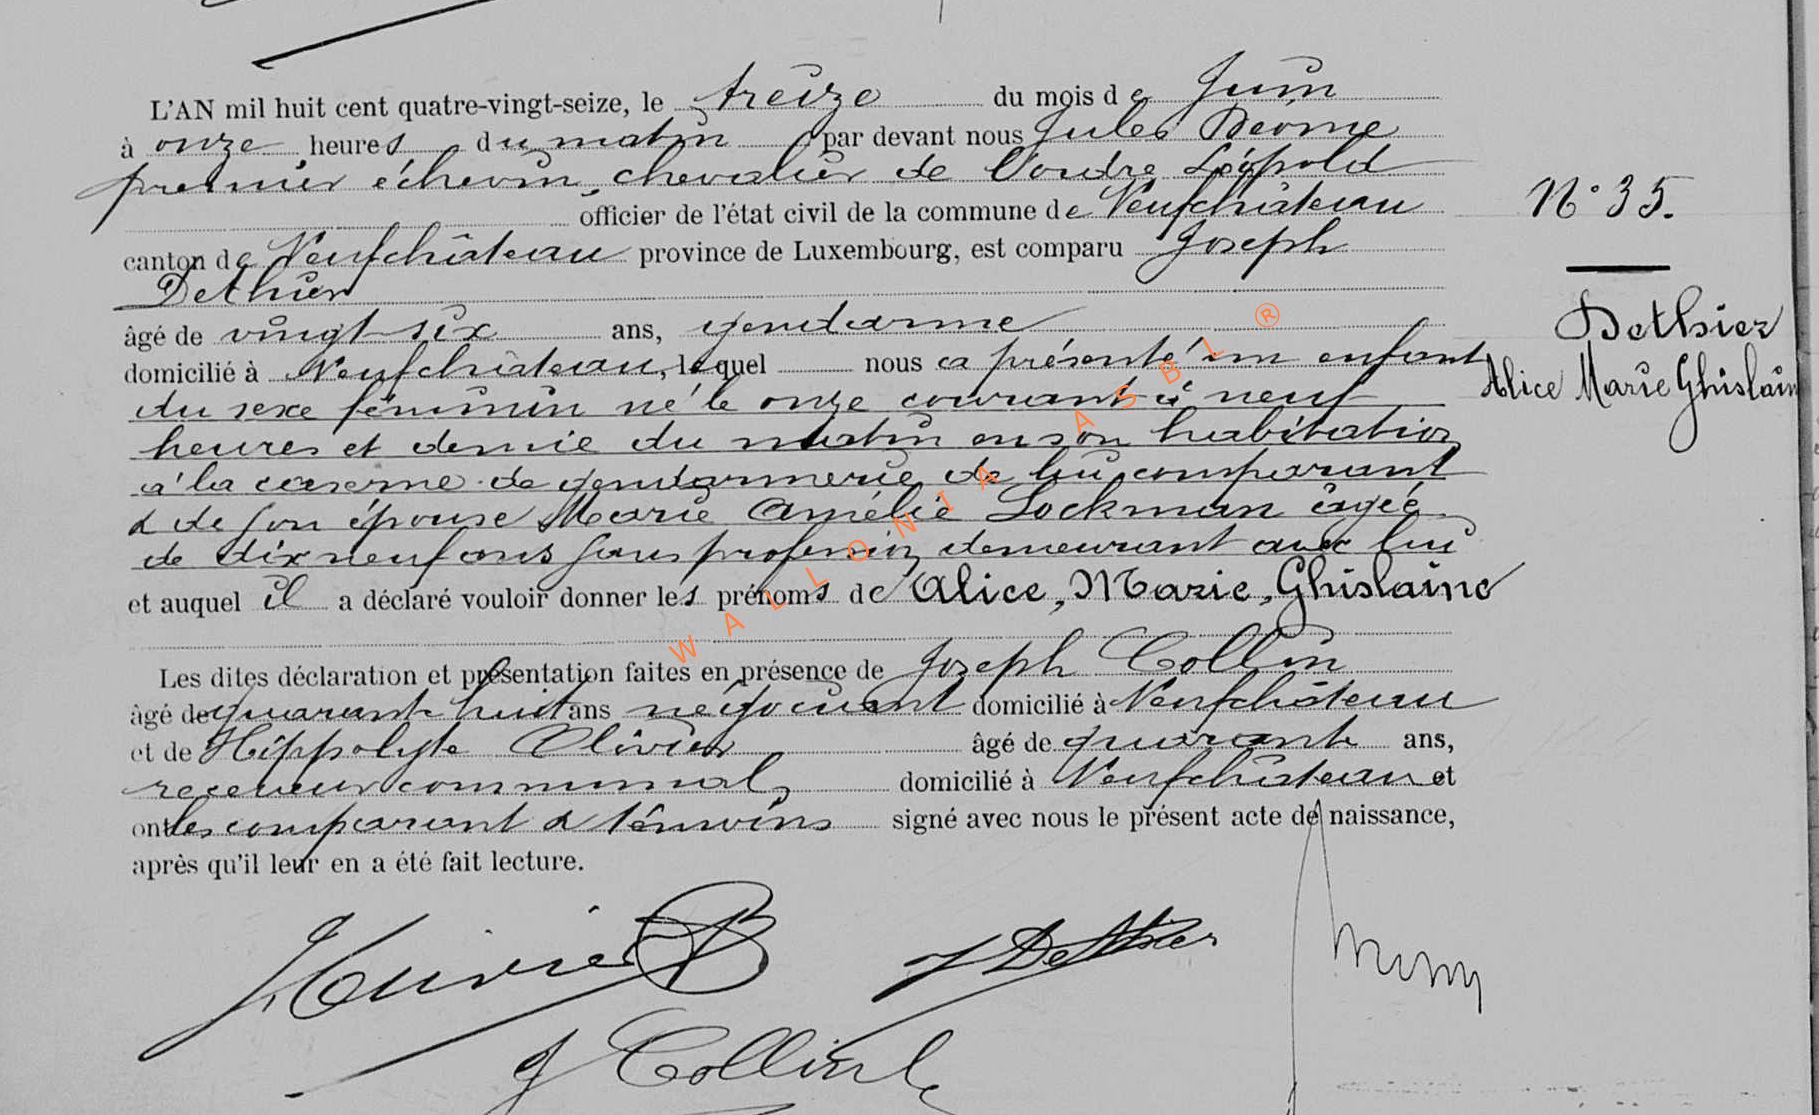 L'AN mil huit cent quatre-vingt-seize, le treize du mois de Juin
à onze heures du matin par devant nous Jules
premier échevin, chevalier de l'ordre Léopold
officier de l'état civil de la commune de Neufchâteau
canton de Neufchâteau province de Luxembourg, est comparu Joseph
Dethier
âgé de vingt six ans, gendarme
domicilié à Neufchâteau, lequel nous a présenté un enfant
du sexe féminin né le onze courant à neuf
heures et demie du matin en son habitation
à la caserne de gendarmerie de lui comparant
& de son épouse Marie Amélie Lockman âgée
de dix neuf ans sans profession demeurant avec lui
et auquel il a déclaré vouloir donner les prénoms de Alice, Marie, Ghislaine
Les dites déclaration et présentation faites en présence de Joseph Collin
âgé de quarante huit ans négociant domicilié à Neufchâteau
et de Hippolyte Olivier âgé de quarante ans,
receveur communal, domicilié à Neufchâteau et
ont les comparant & témoins signé avec nous le présent acte de naissance,
après qu'il leur en a été fait lecture.
N° 35.
Dethier
Alice Marie Ghislain
HOlivier J Dethier
J Collin
WALLONIA ASBL ®